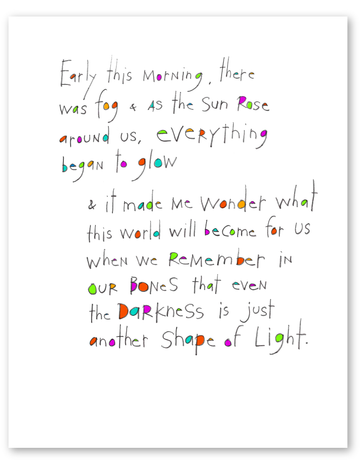 Early this Morning, there
was fog & as the Sun Rose
around us, everything
began to glow
& it made me wonder what
this world will become for us
when we Remember in
our Bones that even
the Darkness is just
another Shape of Light.